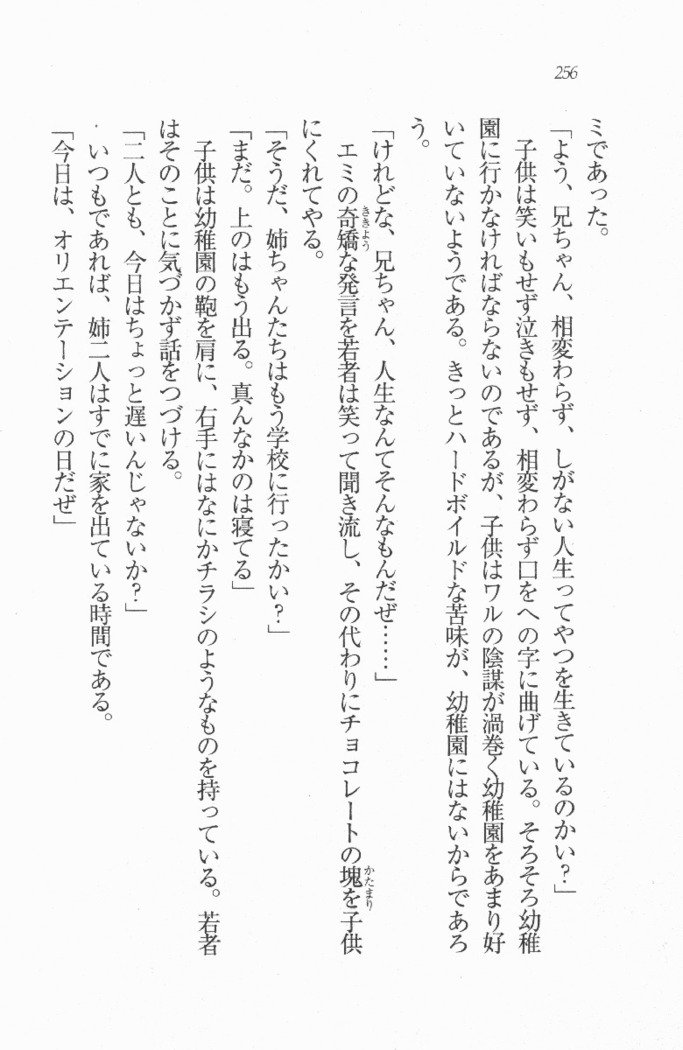 256
ミであった。
「よう、兄ちゃん、相変わらず、しがない人生ってやつを生きているのかい？」
子供は笑いもせず泣きもせず、相変わらず口をへの字に曲げている。そろそろ幼稚
園に行かなければならないのであるが、子供はワルの陰謀が渦巻く幼稚園をあまり好
いていないようである。きっとハードボイルドな苦味が、幼稚園にはないからであろ
う。
「けれどな、兄ちゃん、人生なんてそんなもんだぜ……」
エミの奇矯な発言を若者は笑って聞き流し、その代わりにチョコレートの塊を子供
ききょう
かたまり
にくれてやる。
「そうだ、姉ちゃんたちはもう学校に行ったかい？」
「まだ。上のはもう出る。真んなかのは寝てる」
子供は幼稚園の鞄を肩に、右手にはなにかチラシのようなものを持っている。若者
はそのことに気づかず話をつづける。
「二人とも、今日はちょっと遅いんじゃないか？」
いつもであれば、姉二人はすでに家を出ている時間である。
「今日は、オリエンテーションの日だぜ」